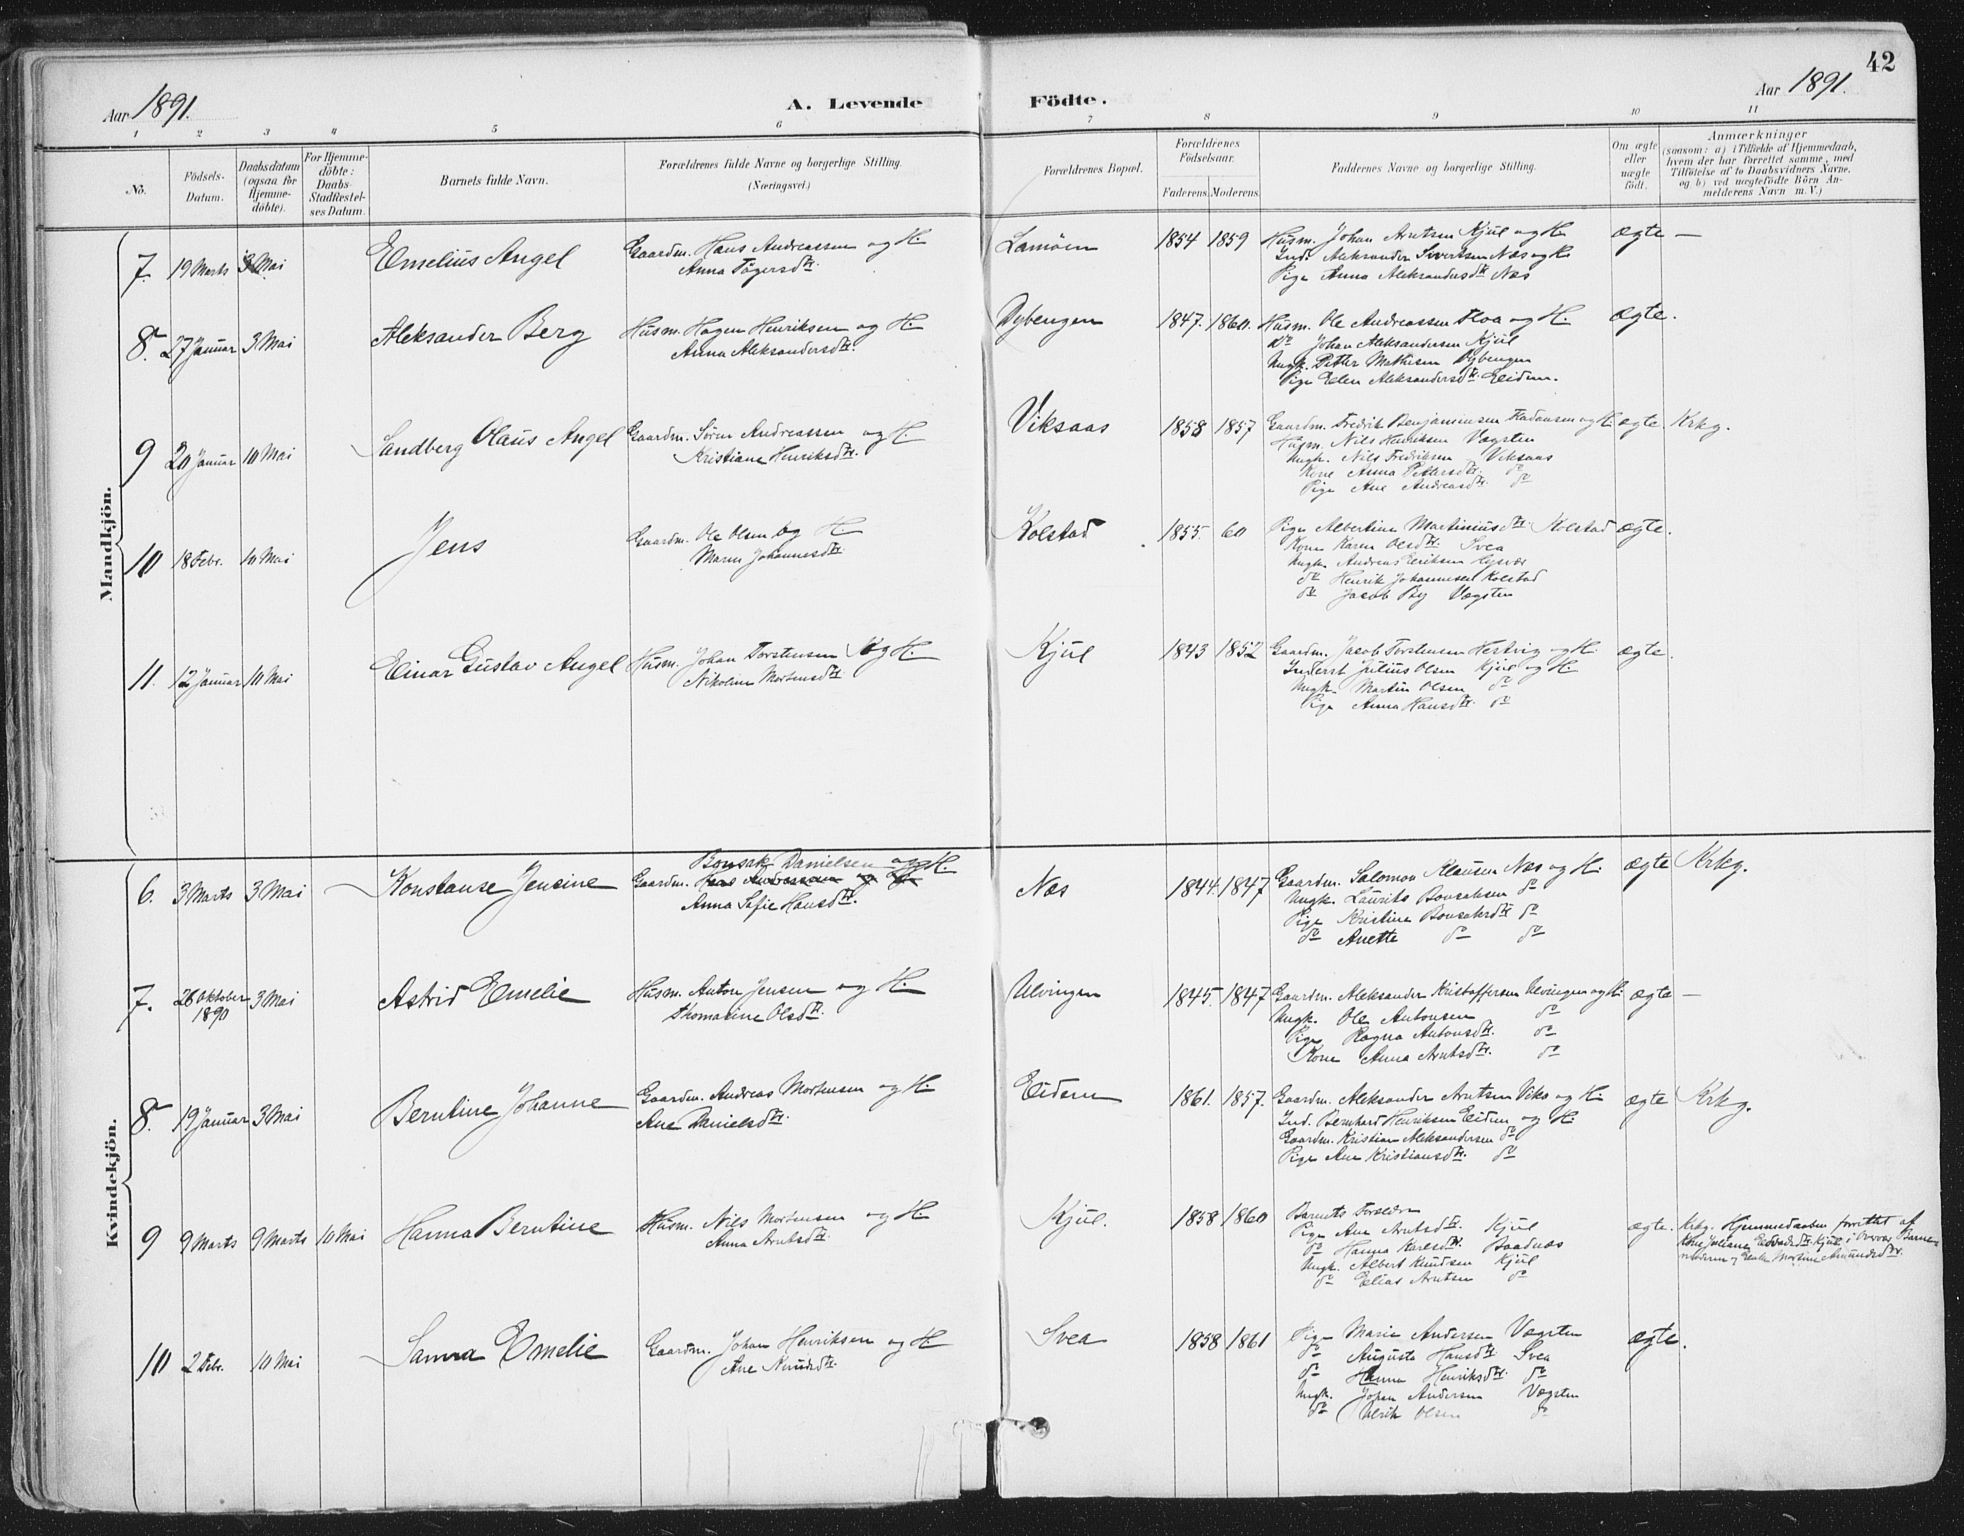 42
Aar 1891.
A. Levende Födte.
Aar 1891.
1 2 3 4 5 6 7 8 9 10 11
No.
Födsels-Datum.
Daabsdatum (ogsaa for Hjemme-döbte).
For Hjemme-döbte: Daabs-Stadfæstel-ses Datum.
Barnets fulde Navn.
Forældrenes fulde Navne og borgerlige Stilling. (Næringsvei.)
Forældrenes Bopæl.
Forældrenes Födselsaar.
Faderens. Moderens.
Faddernes Navne og borgerlige Stilling.
Om ægte eller uægte födt.
Anmærkninger
(saasom: a) i Tilfælde af Hjemmedaab,
hvem der har forrettet samme, med
Tilföielse af to Daabsvidners Navne,
og b) ved uægtefödte Börn An-
melderens Navn m. V.)
Mandkjön.
7. 19 Marts 3 Mai Emelius Angel Gaardm. Hans Andreassen og H. Lamøen 1854 1859 Husm. Johan Arntsen Kjul og H. ægte —
Anna Tøgersdtr. Ind. Aleksander Sivertsen Næs og H.
Pige Anna Aleksandersdtr Næs
8. 27 Januar 3 Mai Aleksander Berg Husm. Hagen Henriksen og H. Dybengen 1847. 1860. Husm. Ole Andreassen Floa og H. ægte.
Anna Aleksandersdtr. Do Johan Aleksandersen Kjul
Ungk. Petter Mathisen Dybengen
Pige Elen Aleksandersdtr. Eidem.
9 20 Januar 10 Mai Sandberg Olaus Angel Gaardm. Sørn Andreassen og H. Viksaas 1858 1857 Gaardm. Fredrik Benjaminsen og H. ægte Krkg.
Kristiane Henriksdtr. Husm. Nils Henriksen Vægsten
Ungk. Nils Fredriksen Viksaas
Kone Anna Pettersdtr. do
Pige Ane Andreasdtr. do
10 18 Febr. 10 Mai Jens Gaardm. Ole Olsen og H. Kolstad 1855. 60 Pige Albertine Martiniusdtr. Kolstad ægte.
Maren Johannesdtr. Kone Karen Olsdtr. Svea
Ungk. Andreas Eriksen Hysvær
do Henrik Johannesen Kolstad
do Jacob By Vægsten
11. 12 Januar 10 Mai Einar Gustav Angel Husm. Johan Torstensen og H. Kjul 1843 1852 Gaardm. Jacob Torstensen Hestvig og H. ægte.
Nikoline Mortensdtr. Inderst Julius Olsen Kjul og H.
Ungk. Martin Olsen do
Pige Anna Hansdtr. do
Kvindekjön.
Bonsak Danielsen og H.
6. 3 Marts 3 Mai Konstanse Jensine Gaardm. Hans Andreassen og H. Næs 1844. 1847 Gaardm. Salomon Klausen Næs og H. ægte Krkg.
Anna Sofie Hansdtr. Ungk. Laurits Bonsaksen do
Pige Kristine Bonsaksdtr do
do Anette do do
7. 26 Oktober 1890 3 Mai Astrid Emelie Husm. Anton Jensen og H. Ulvingen 1845. 1847 Gaardm. Aleksander Kristoffersen Ulvingen og H. ægte —
Thomasine Olsdtr. Ungk. Ole Antonsen do
Pige Ragna Antonsdtr. do
Kone Anna Arntsdtr. do
8. 19 Januar 3 Mai Berntine Johanne Gaardm. Andreas Mortensen og H. Eidem 1861. 1857. Gaardm. Aleksander Arntsen Viks og H. ægte Krkg.
Ane Danielsdtr. Ind. Bernhard Henriksen Eidem og H.
Gaardm. Kristian Aleksandersen do
Pige Ane Kristiansdtr. do
9 9 Marts 9 Marts 10 Mai Hanna Berntine Husm. Nils Mortensen og H. Kjul. 1858 1860 Barnets Forældre ægte. Krkg. Hjemmedaaben forrettet af
Anna Arntsdtr. Pige Ane Arntsdtr. Kjul Kone Juliane Kjul i Overvær af Barne-
do Hanna Karlsdtr. Baadnæs moderen og Enke Martine Amundsdtr.
Ungk. Albert Knudsen Kjul
do Elias Arntsen do
10 2 Febr. 10 Mai Sanna Emelie Gaardm. Johan Henriksen og H. Svea 1858 1861 Pige Marie Andersen Vægsten ægte.
Ane Knudsdtr. do Augusta Hansdtr Svea
do Hanna Henriksdtr. do
Ungk. Johan Andersen Vægsten
do Ulrik Olsen do